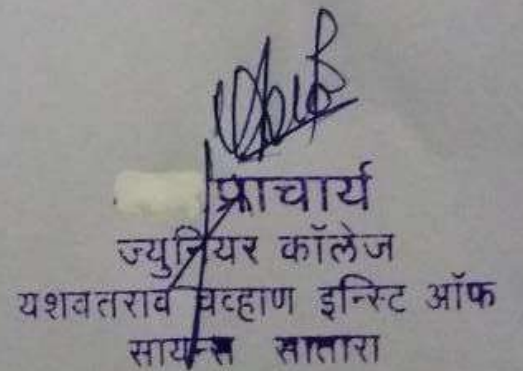 प्राचार्य
ज्युनियर कॉलेज
यशवतराव चव्हाण इन्स्टि ऑफ
सायन्स सातारा